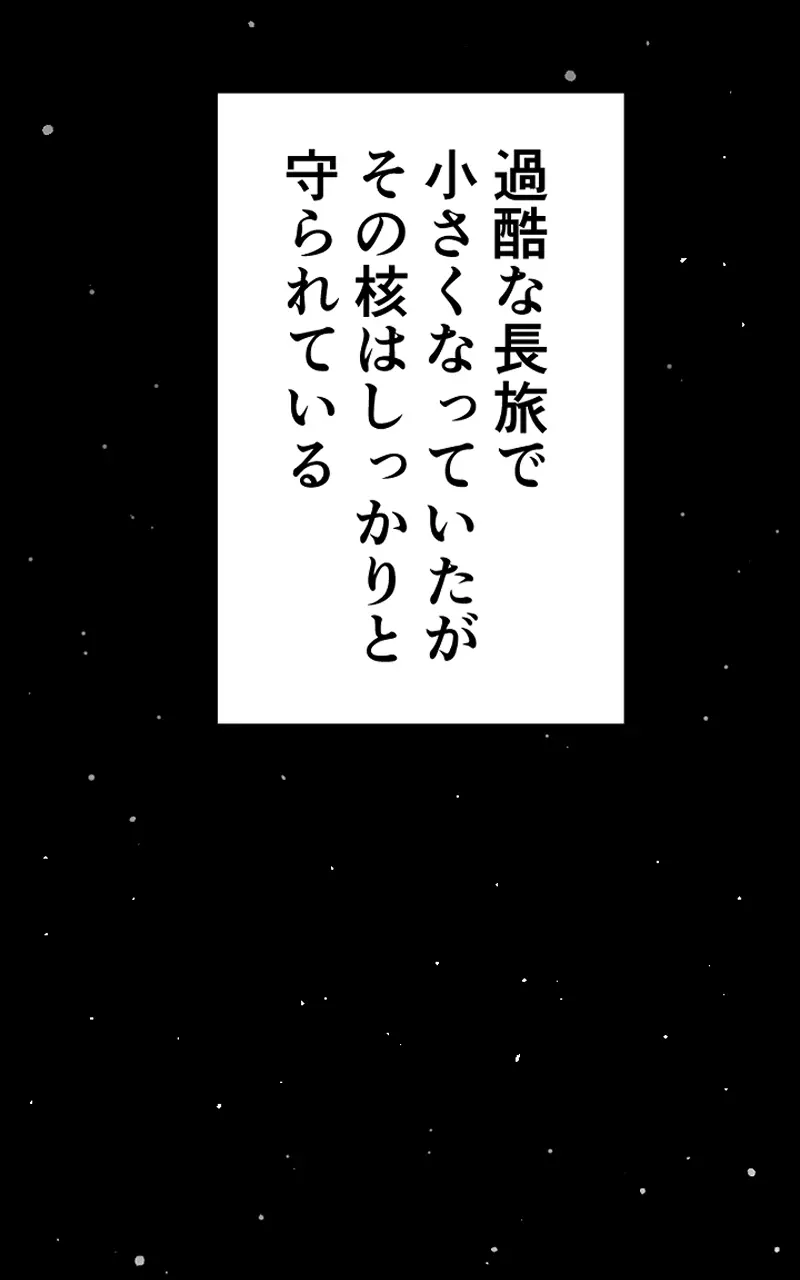 過酷な長旅で
小さくなっていたが
その核はしっかりと
守られている